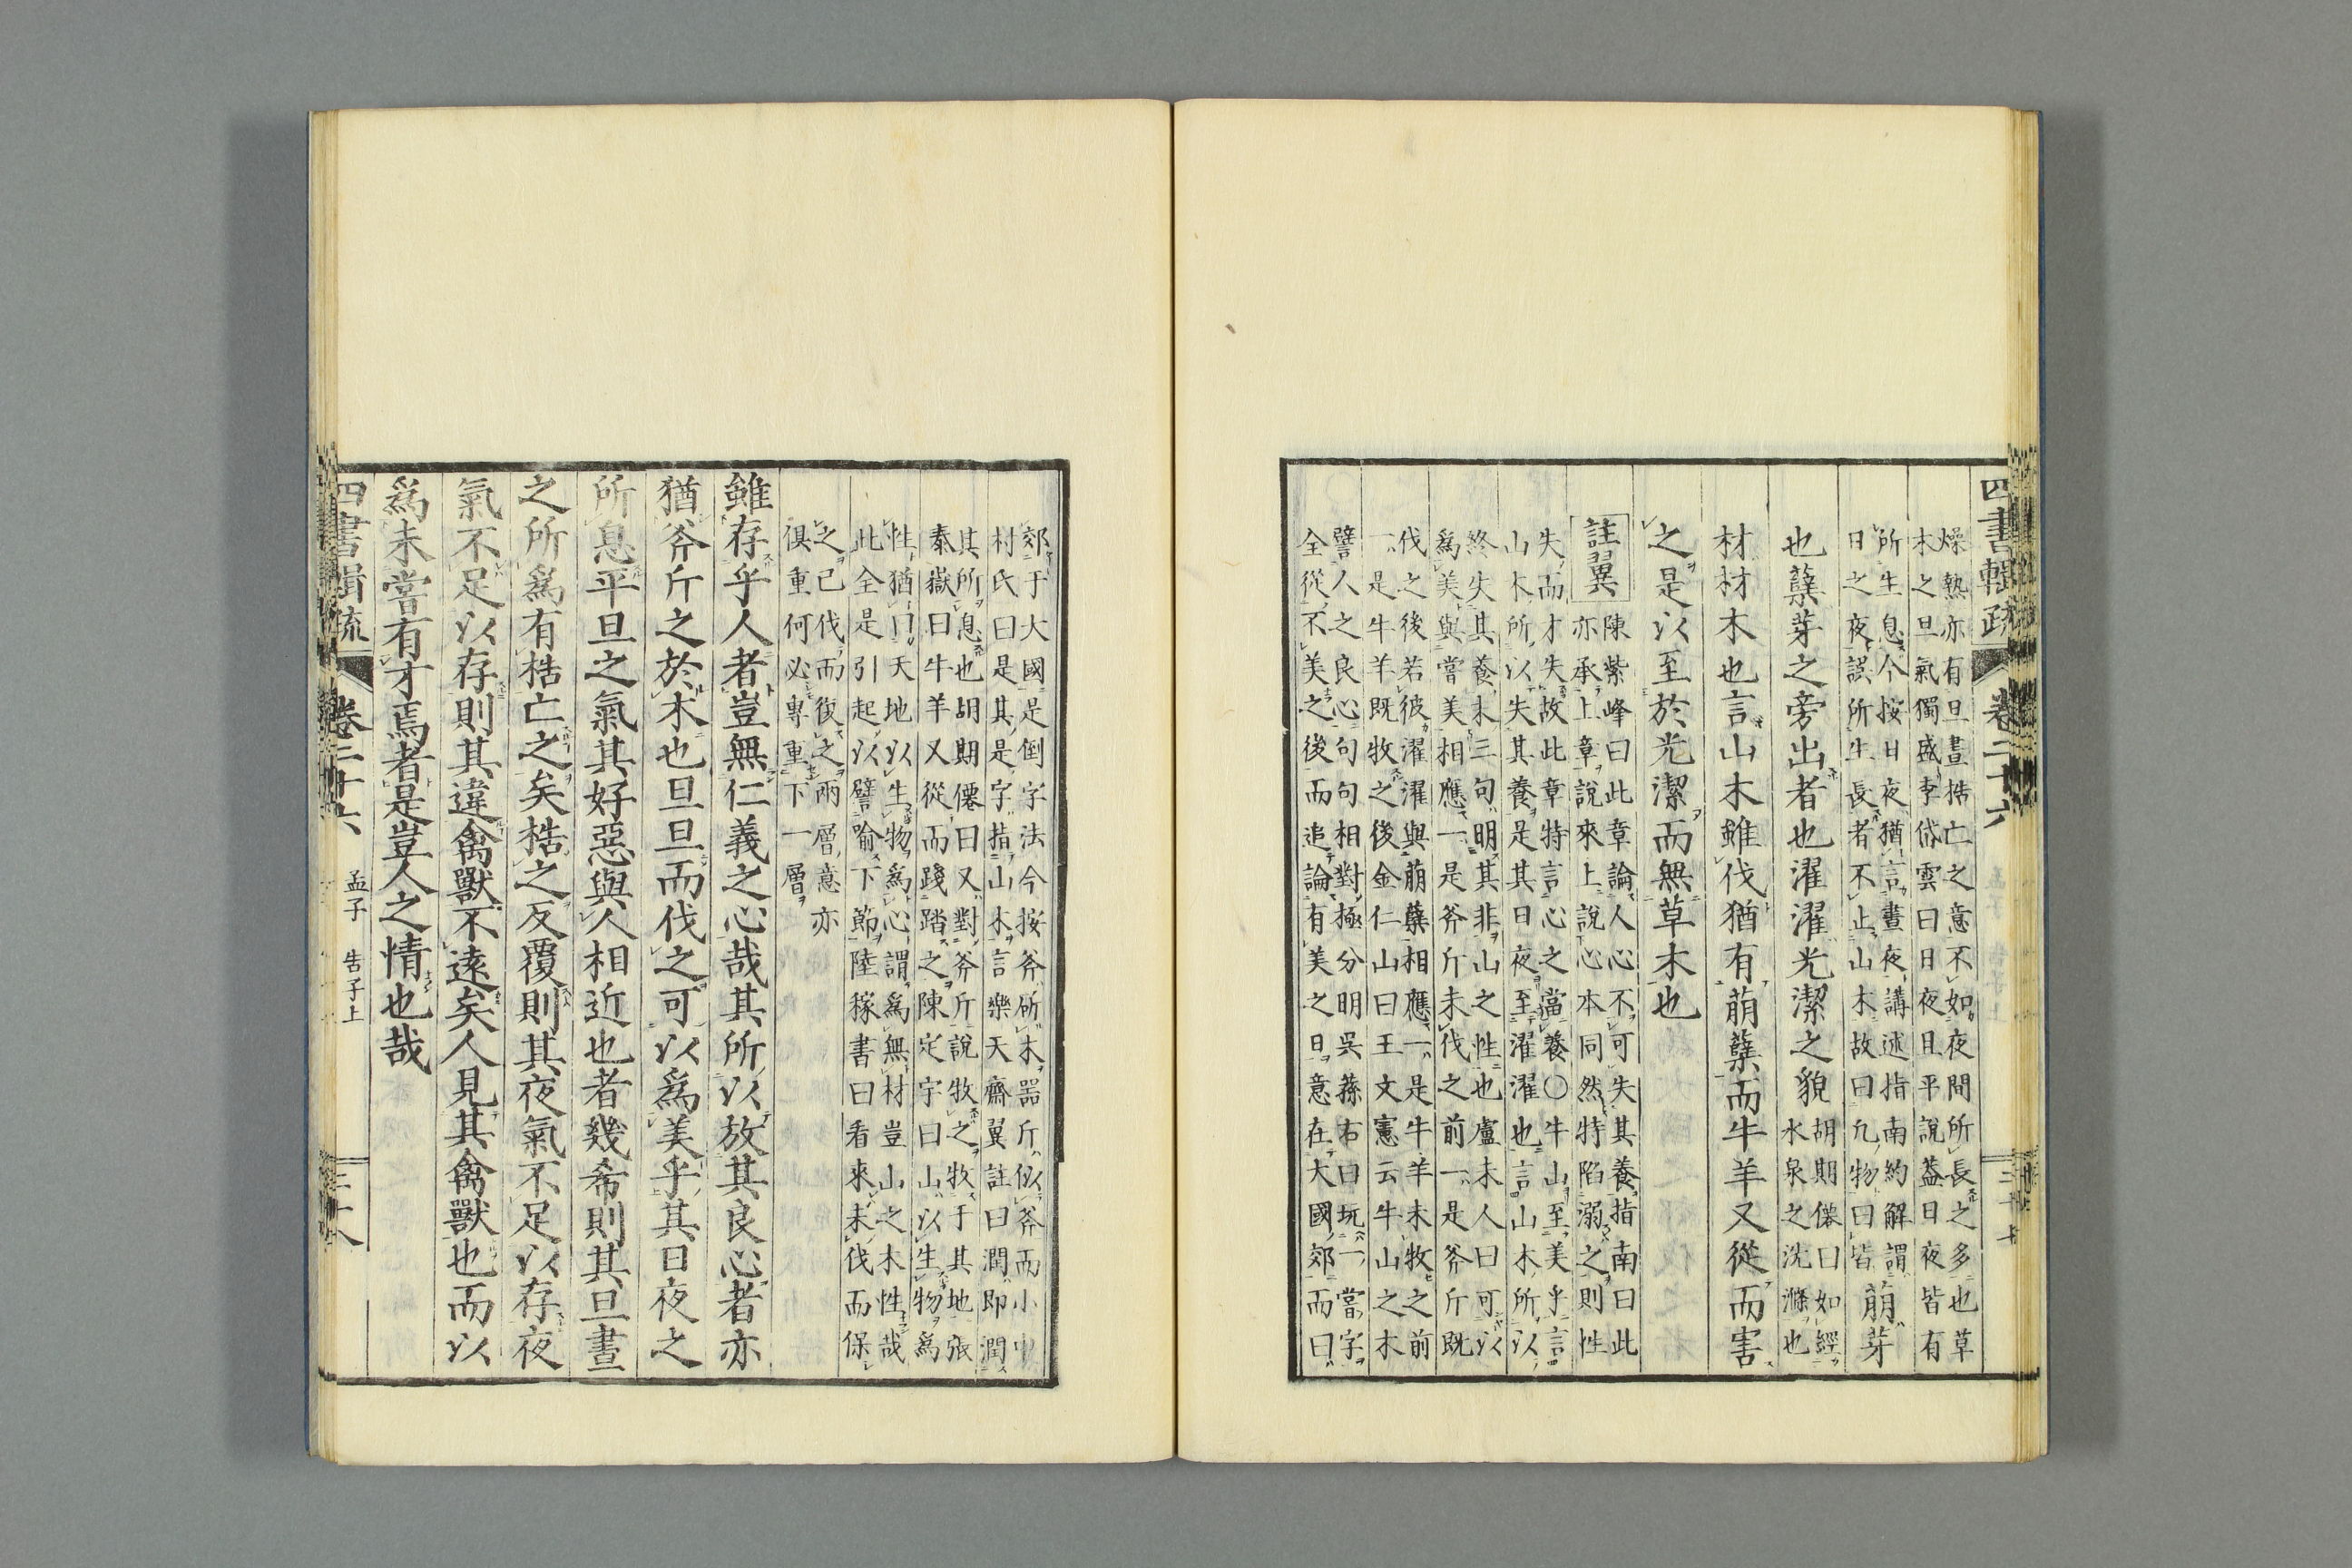 四書輯疏 卷二十六 三十七
燥熱亦有旦晝梏亡之意不如夜間所長之多也草
木之旦氣獨盛李岱雲曰日夜且平說葢日夜皆有
所生息今按日夜猶言晝夜講述指南約解謂
日之夜誤所生長者不止山木故曰凢物曰皆
萠芽
也蘖芽之旁出者也濯濯光潔之貌
胡期僊曰如經
水泉之洗滌也
材材木也言山木雖伐猶有萠蘖而牛羊又從而害
之是以至於光潔而無草木也
註翼
陳紫峰曰此章論人心不可失其養指南曰此
亦承上章說來上說心本同然特陷溺之則性
失而才失故此章特言心之當養〇牛山至美乎言
山木所以失其養是其日夜至濯濯也言山木所以
終失其養末三句明其非山之性也盧未人曰可以
爲美與嘗美相應一是斧斤未伐之前一是斧斤既
伐之後若彼濯濯與萠蘖相應一是牛羊未牧之前
一是牛羊既牧之後金仁山曰王文憲云牛山之木
譬人之良心句句相對極分明吳蓀右曰玩一嘗字
全從不美之後而追論有美之日意在大國郊而曰
郊于大國是倒字法今按斧斫木噐斤似斧而小中
村氏曰是其是字指山木言樂天齋翼註曰潤即潤
其所息也胡期僊曰又對斧斤說牧之牧于其地張
泰嶽曰牛羊又從而踐踏之陳定宇曰山以生物爲
性猶曰天地以生物爲心謂爲無材豈山之木性哉
此全是引起以譬喻下節陸稼書曰看來未伐而保
之已伐而復之兩層意亦
俱重何必專重下一層
雖存乎人者豈無仁義之心哉其所以放其良心者亦
猶斧斤之於木也旦旦而伐之可以爲美乎其日夜之
所息平旦之氣其好惡與人相近也者幾希則其旦晝
之所爲有梏亡之矣梏之反覆則其夜氣不足以存夜
氣不足以存則其違禽獸不遠矣人見其禽獸也而以
爲未嘗有才焉者是豈人之情也哉
四書輯疏 卷二十六 孟子 告子上 三十八